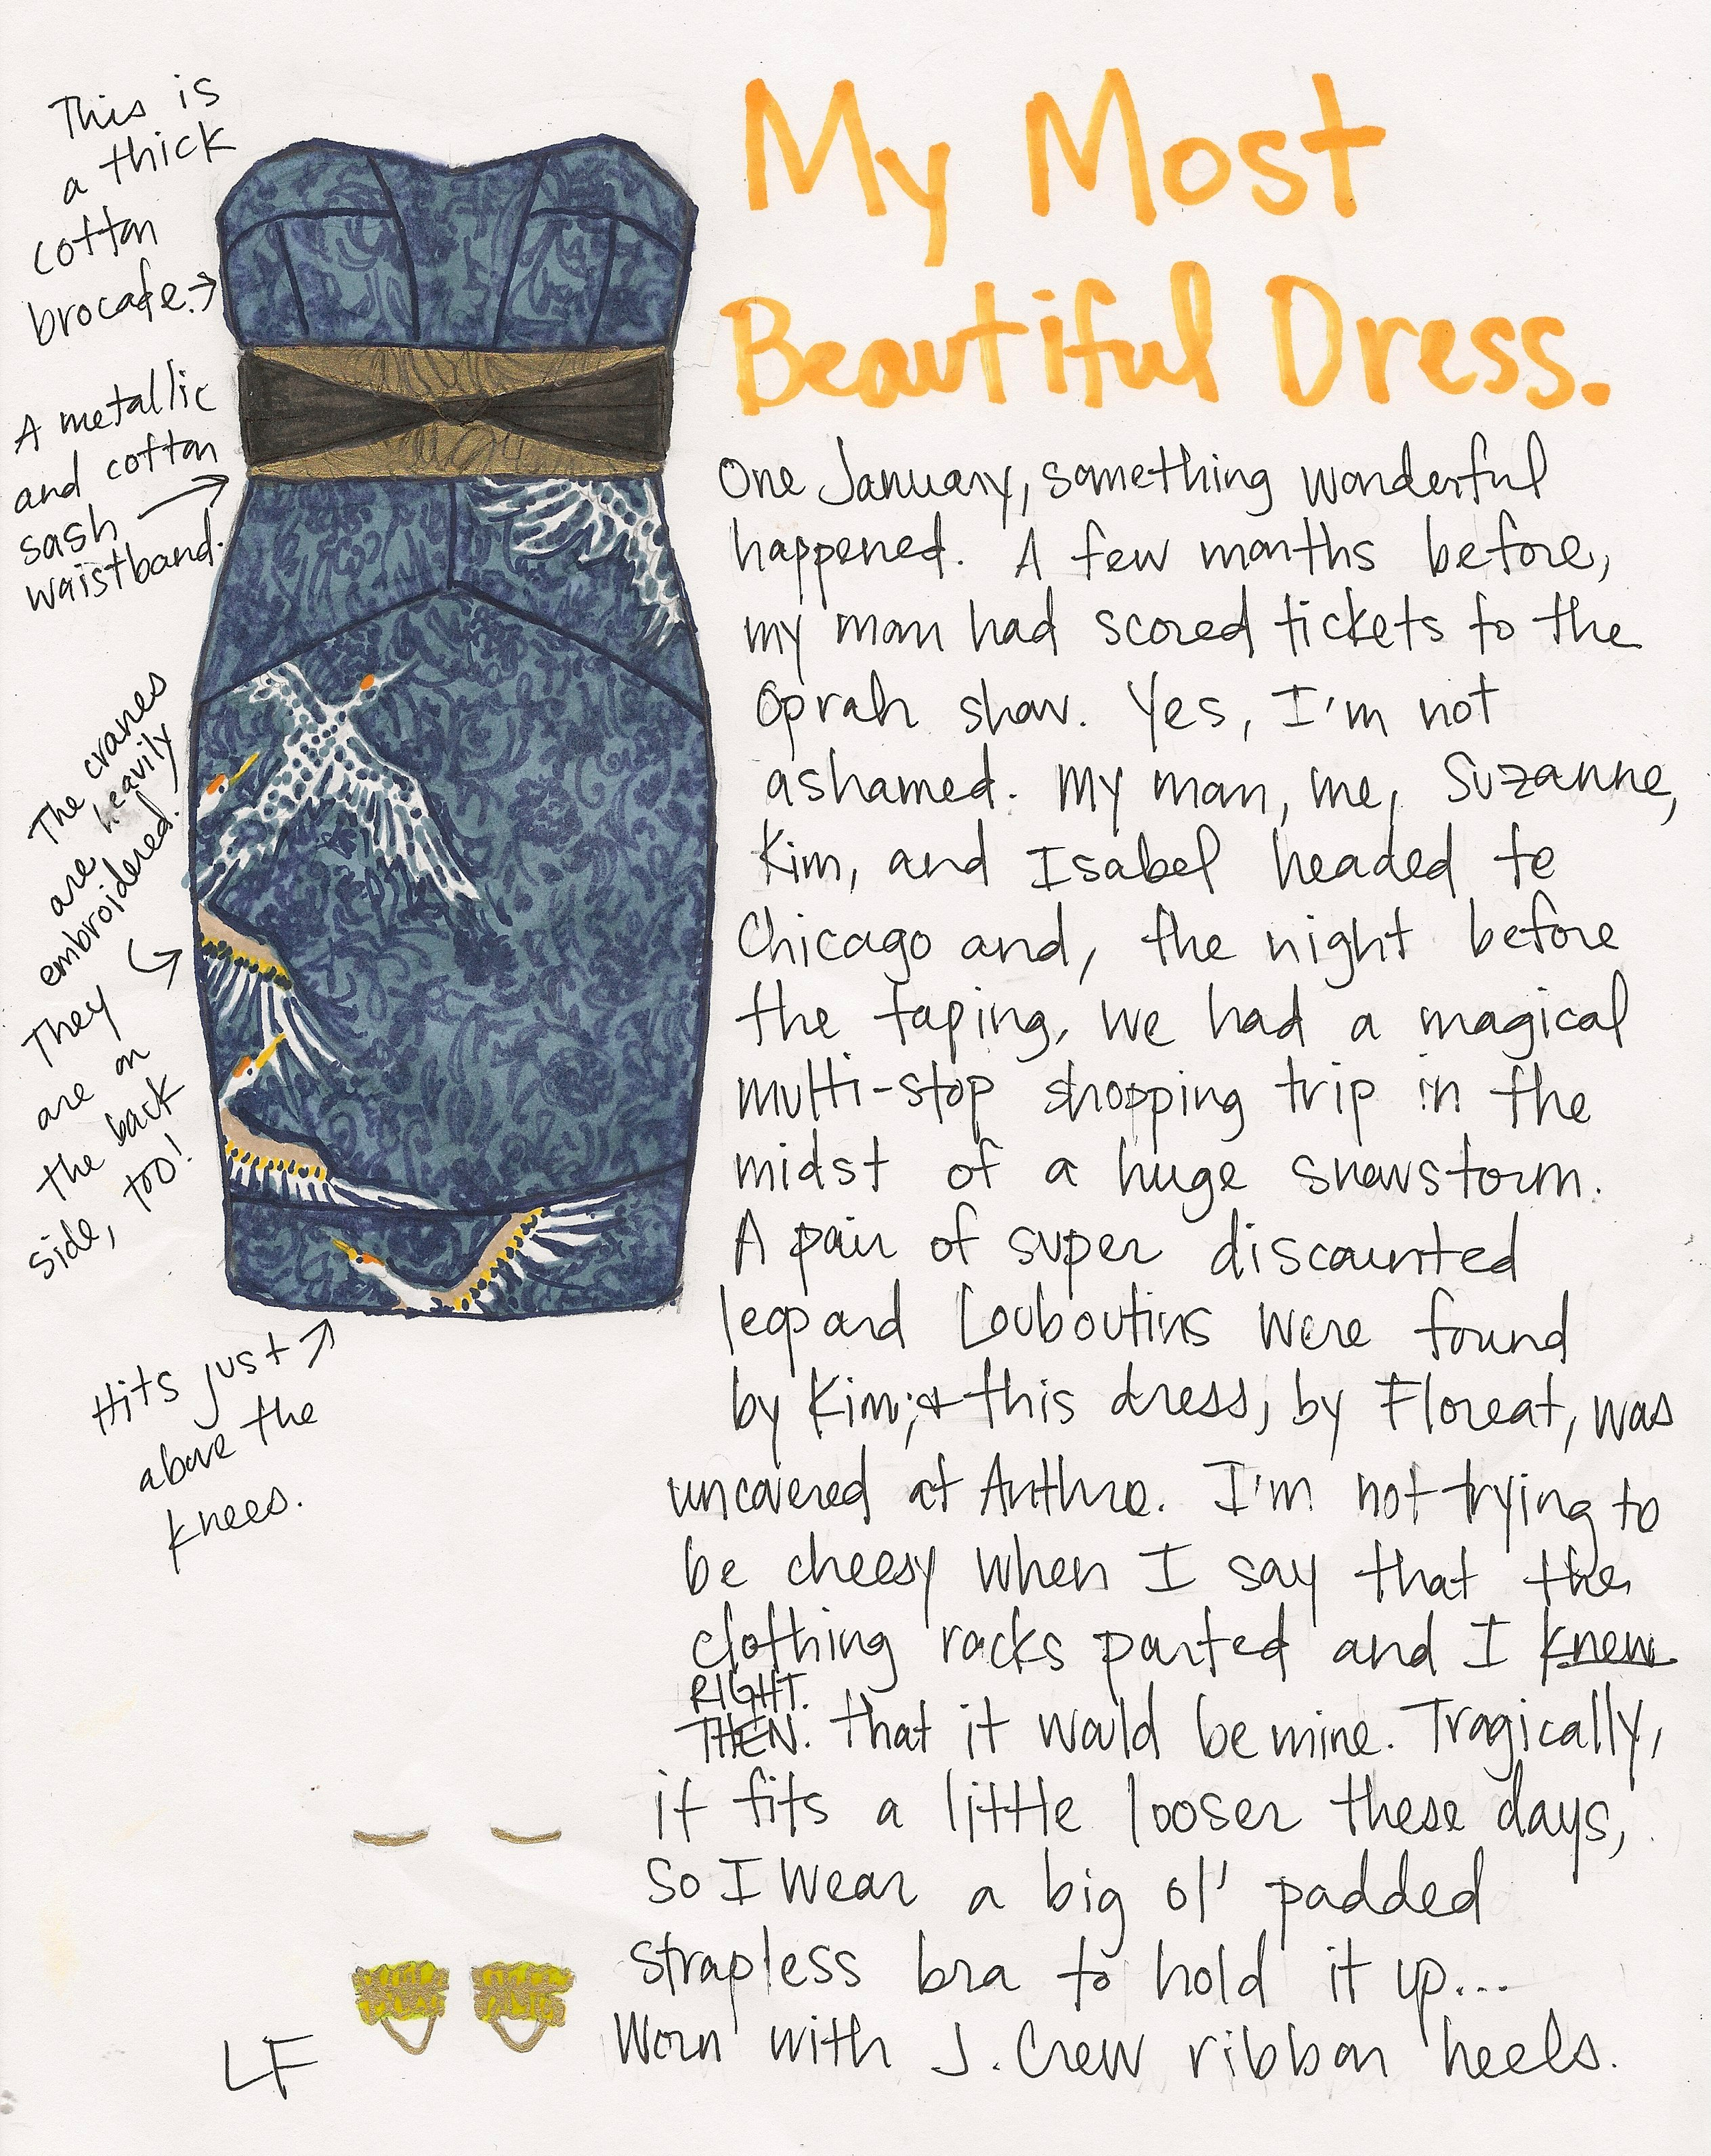 My Most
Beautiful Dress.
This is
a thick
cotton
brocade.
A metallic
and cotton
sash
waistband.
The cranes
are heavily
embroidered.
They
are on
the back
side, too!
Hits just
above the
knees.
One January, something wonderful
happened. A few months before,
my man had scored tickets to the
Oprah show. Yes, I'm not
ashamed. My man, me, Suzanne,
Kim, and Isabel headed to
Chicago and, the night before
the taping, we had a magical
multi-stop shopping trip in the
midst of a huge snowstorm.
A pair of super discounted
leopard Louboutins were found
by Kim; & this dress, by Floreat, was
uncovered at Anthro. I'm not trying to
be cheesy when I say that the
clothing racks parted and I knew
RIGHT.
THEN. that it would be mine. Tragically,
it fits a little looser these days,
so I wear a big ol' padded
strapless bra to hold it up...
Worn with J.Crew ribbon heels.
LF